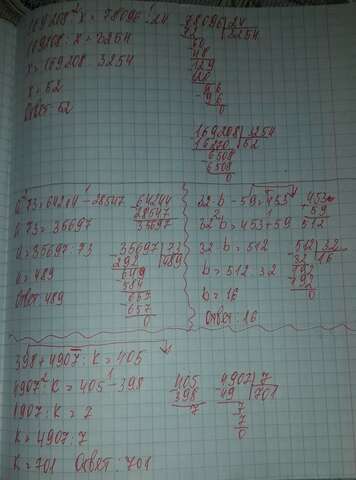 169208 : x = 78096 : 24
169208 : x = 3254
x = 169208 : 3254
x = 52
Ответ: 52
78096 24
72 3254
61
48
129
120
96
96
0
169208 3254
16270 52
6508
6508
0
u · 73 = 64244 - 28547
u · 73 = 35697
u = 35697 : 73
u = 489
Ответ: 489
64244
28547
35697
35697 73
292 489
649
584
657
657
0
32 · b - 59 = 453
32 · b = 453 + 59
32 · b = 512
b = 512 : 32
b = 16
Ответ: 16
453
59
512
512 32
32 16
192
192
0
398 + 4907 : K = 405
4907 : K = 405 - 398
4907 : K = 7
K = 4907 : 7
K = 701 Ответ: 701
405
398
7
4907 7
49 701
7
7
0